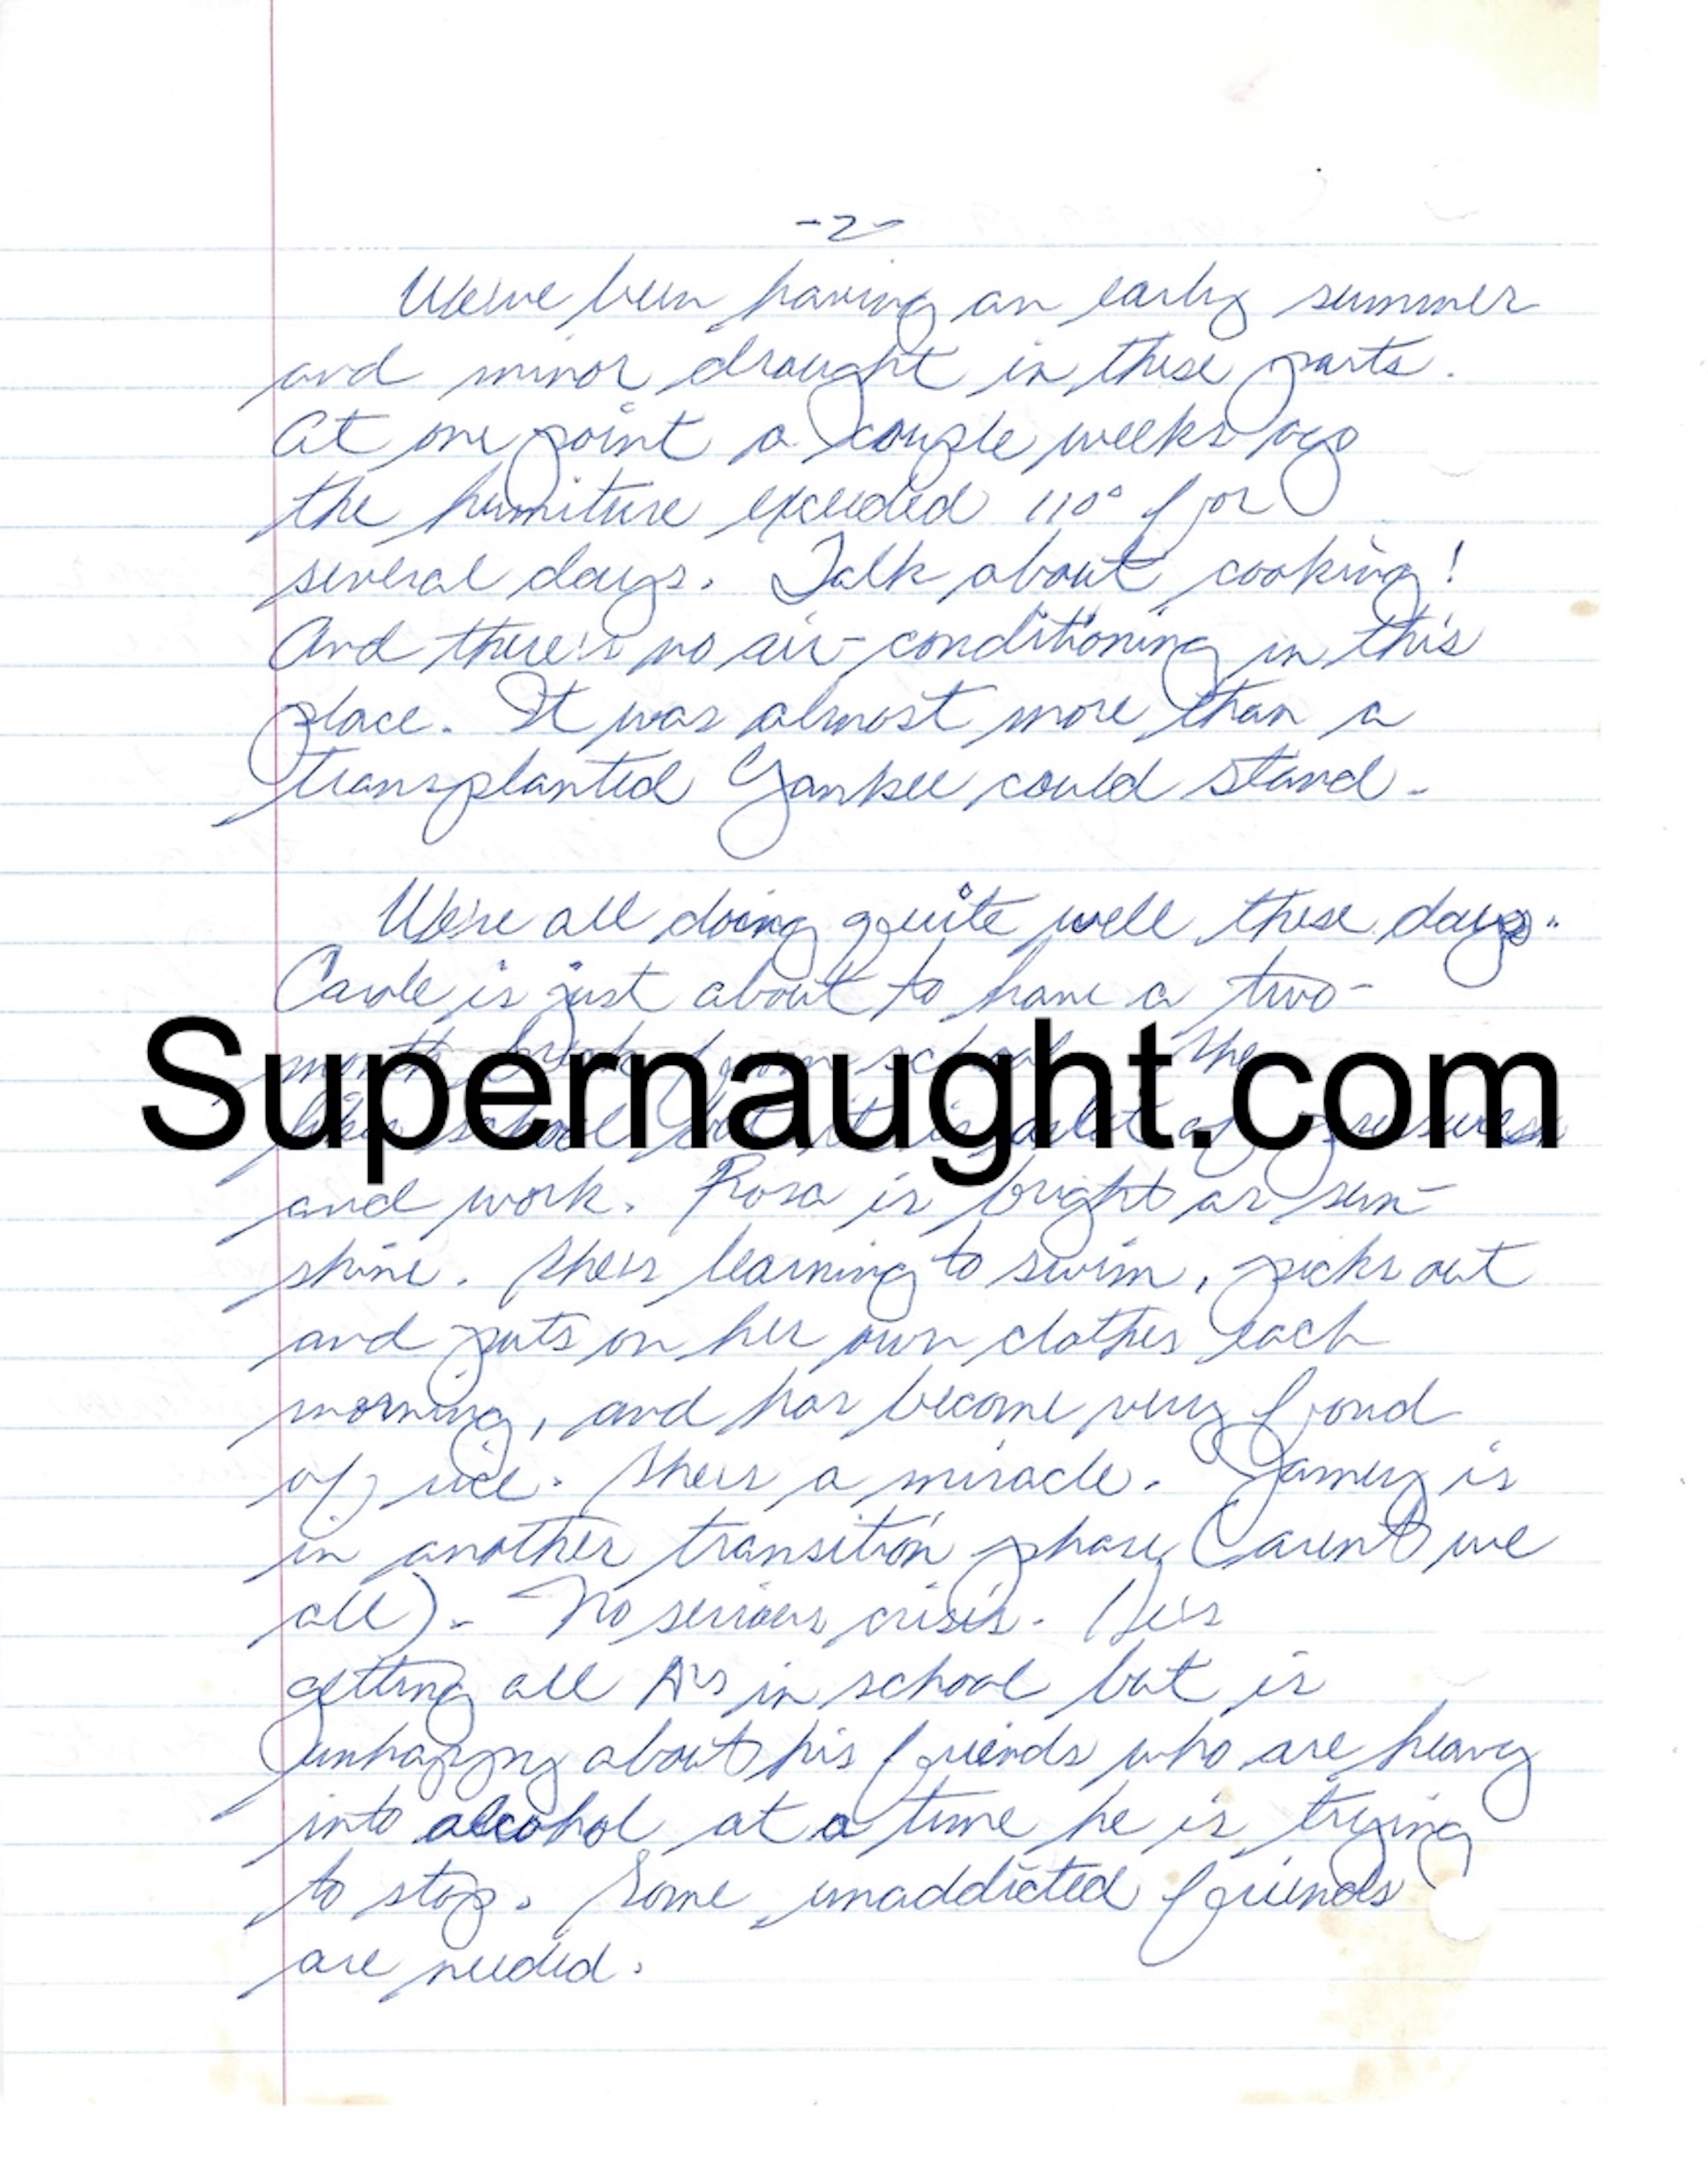 -2-
We've been having an early summer
and minor drought in these parts.
At one point a couple weeks ago
the humiture exceeded 110° for
several days. Talk about cooking!
And there's no air-conditioning in this
place. It was almost more than a
transplanted Yankee could stand.
We're all doing quite well these days.
Carole is just about to have a two-
month break from school. She
Supernaught.com
likes school but it is a lot of pressures
and work. Rosa is bright as sun-
shine. She's learning to swim, picks out
and puts on her own clothes each
morning, and has become very fond
of rice. She's a miracle. Jamey is
in another transition phase (aren't we
all). No serious crisis. He's
getting all A's in school but is
unhappy about his friends who are heavy
into alcohol at a time he is trying
to stop. Some unaddicted friends
are needed.